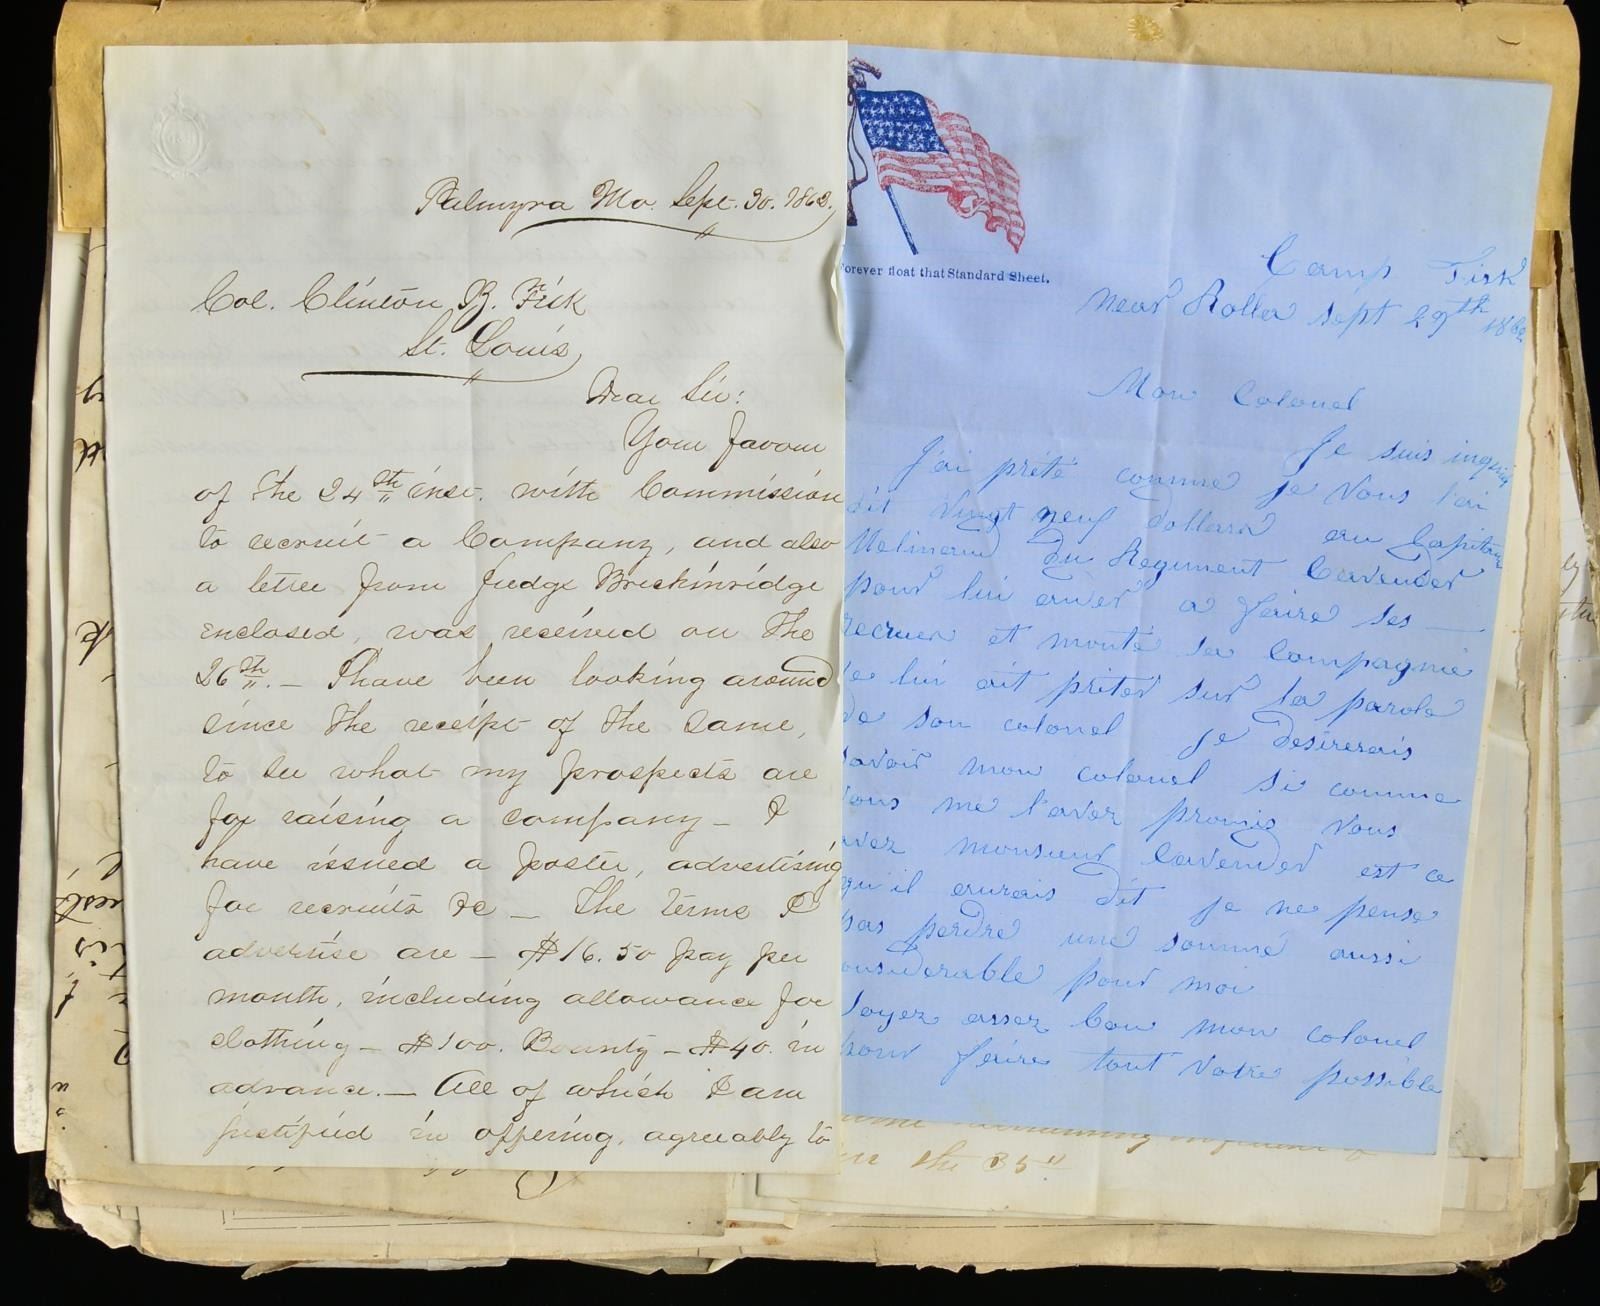 Palmyra Mo. Sept. 30. 1862.
Col. Clinton B. Fisk
St. Louis
Dear Sir:
Your favour
of the 24th inst. with Commission
to recruit a Company, and also
a letter from Judge Breckinridge
enclosed, was received on the
26th. — I have been looking around
since the receipt of the same,
to see what my prospects are
for raising a company — I
have issued a poster, advertising
for recruits &c — The terms I
advertise are — $16.50 pay per
month, including allowance for
clothing — $100. Bounty — $40. in
advance. — All of which I am
justified in offering, agreeably to
Forever float that Standard Sheet.
Camp Fisk
near Rolla sept 29th 1862
Mon Colonel
Je suis inquiet
J'ai prété comme je vous l'ai
dit vingt neuf dollars au Capitaine
du Regiment Cavender
pour lui aider a faire ses
recrues et monté sa compagnie
Je lui ait préter sur la parole
de son colonel je desirerais
savoir mon colonel si comme
vous me l'avez promis vous
avez monsieur Cavender est ce
qu'il aurais dit je ne pense
pas perdre une somme aussi
considerable pour moi
Soyez assez bon mon colonel
pour faire tout votre possible
in the 35"